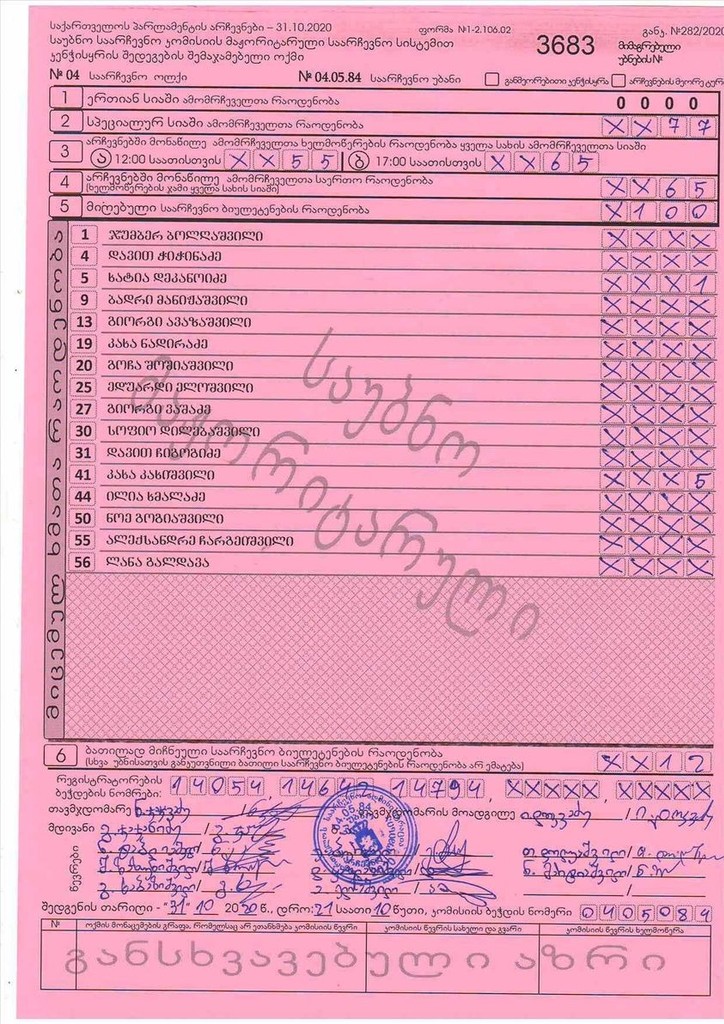 საქართველოს პარლამენტის არჩევნები – 31.10.2020
ფორმა №1-2.106.02
განკ. №282/2020
საუბნო საარჩევნო კომისიის მაჟორიტარული საარჩევნო სისტემით
კენჭისყრის შედეგების შემაჯამებელი ოქმი
3683
მიმაგრებელი
უბნების №
№ 04 საარჩევნო ოლქი № 04.05.84 საარჩევნო უბანი განმეორებითი კენჭისყრა არჩევნების მეორე ტურ
1 ერთიან სიაში ამომრჩეველთა რაოდენობა 0 0 0 0
2 სპეციალურ სიაში ამომრჩეველთა რაოდენობა X X 7 7
3 არჩევნებში მონაწილე ამომრჩეველთა ხელმოწერების რაოდენობა ყველა სახის ამომრჩეველთა სიაში
ა 12:00 საათისთვის X X 5 5 ბ 17:00 საათისთვის X X 6 5
4 არჩევნებში მონაწილე ამომრჩეველთა საერთო რაოდენობა X X 6 5
(ხელმოწერების ჯამი ყველა სახის სიაში)
5 მიღებული საარჩევნო ბიულეტენების რაოდენობა X 1 0 0
მიცემულ ხმათა რაოდენობა
1 ჯუმბერ ბოლღაშვილი X X X X
4 დავით ჭიჭინაძე X X X X
5 ხატია დეკანოიძე X X X 1
9 ბადრი მანიჟაშვილი X X X X
13 გიორგი ავაზაშვილი X X X X
19 კახა ნადირაძე X X X X
20 გოჩა შოშიაშვილი X X X X
25 ედუარდი ელოშვილი X X X X
27 გიორგი ვაშაძე X X X X
30 სოფიო დილებაშვილი X X X X
31 დავით ჩიბოგიძე X X X X
41 კახა კახიშვილი X X X 5
44 ილია ხმალაძე X X X X
50 ნოე გოგიაშვილი X X X X
55 ალექსანდრე ჩარგეიშვილი X X X X
56 ლანა გალდავა X X X X
საუბნო
მაჟორიტარული
6 ბათილად მიჩნეული საარჩევნო ბიულეტენების რაოდენობა X X 1 2
(სხვა უბნისათვის განკუთვნილი ბათილი საარჩევნო ბიულეტენების რაოდენობა არ ემატება)
რეგისტრატორების
ბეჭდის ნომრები: 14054, 14642, 14794, XXXXX, XXXXX
თავმჯდომარე თავმჯდომარის მოადგილე
მდივანი
წევრები
შედგენის თარიღი - "31" 10 2020 წ., დრო: 21 საათი 10 წუთი, კომისიის ბეჭდის ნომერი 0405084
№ ოქმის მონაცემების გრაფა, რომელსაც არ ეთანხმება კომისიის წევრი კომისიის წევრის სახელი და გვარი კომისიის წევრის ხელმოწერა
განსხვავებული აზრი